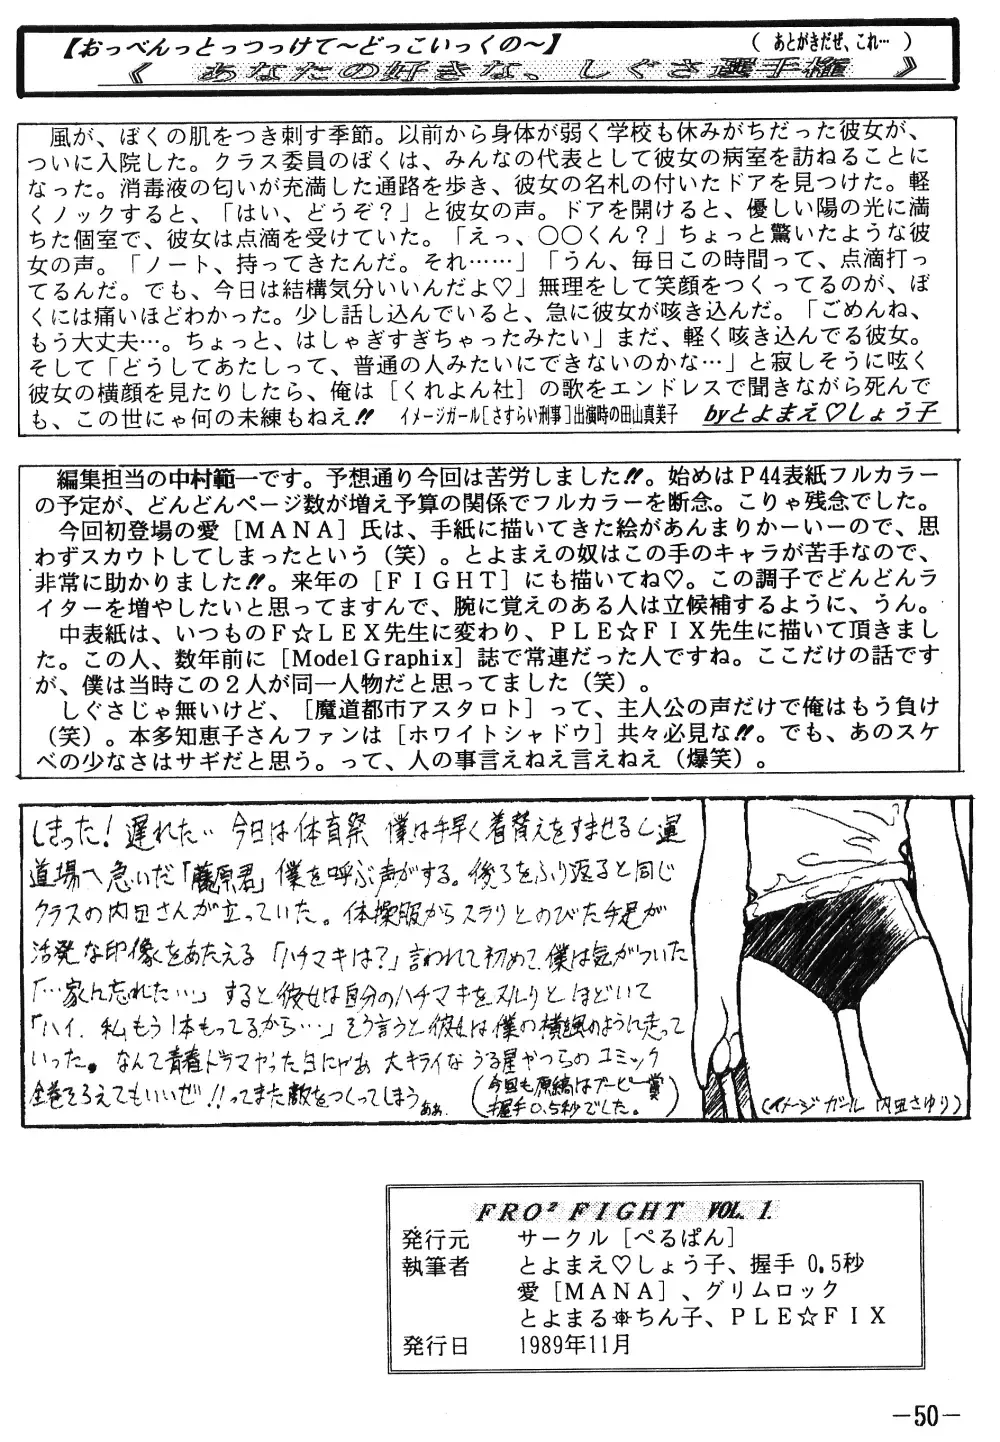 【おっべんっとっつっけて～どっこいっくの～】 （ あとがきだぜ、これ… ）
《 あなたの好きな、しぐさ選手権 》
風が、ぼくの肌をつき刺す季節。以前から身体が弱く学校も休みがちだった彼女が、
ついに入院した。クラス委員のぼくは、みんなの代表として彼女の病室を訪ねることに
なった。消毒液の匂いが充満した通路を歩き、彼女の名札の付いたドアを見つけた。軽
くノックすると、「はい、どうぞ？」と彼女の声。ドアを開けると、優しい陽の光に満
ちた個室で、彼女は点滴を受けていた。「えっ、〇〇くん？」ちょっと驚いたような彼
女の声。「ノート、持ってきたんだ。それ……」「うん、毎日この時間って、点滴打っ
てるんだ。でも、今日は結構気分いいんだよ♡」無理をして笑顔をつくってるのが、ぼ
くには痛いほどわかった。少し話し込んでいると、急に彼女が咳き込んだ。「ごめんね、
もう大丈夫…。ちょっと、はしゃぎすぎちゃったみたい」まだ、軽く咳き込んでる彼女。
そして「どうしてあたしって、普通の人みたいにできないのかな…」と寂しそうに呟く
彼女の横顔を見たりしたら、俺は［くれよん社］の歌をエンドレスで聞きながら死んで
も、この世にゃ何の未練もねえ!! イメージガール［さすらい刑事］出演時の田山真美子 byとよまえ♡しょう子
編集担当の中村範一です。予想通り今回は苦労しました!!。始めはＰ44表紙フルカラー
の予定が、どんどんページ数が増え予算の関係でフルカラーを断念。こりゃ残念でした。
今回初登場の愛［ＭＡＮＡ］氏は、手紙に描いてきた絵があんまりかーいーので、思
わずスカウトしてしまったという（笑）。とよまえの奴はこの手のキャラが苦手なので、
非常に助かりました!!。来年の［ＦＩＧＨＴ］にも描いてね♡。この調子でどんどんラ
イターを増やしたいと思ってますんで、腕に覚えのある人は立候補するように、うん。
中表紙は、いつものＦ☆ＬＥＸ先生に変わり、ＰＬＥ☆ＦＩＸ先生に描いて頂きまし
た。この人、数年前に［ModelGraphix］誌で常連だった人ですね。ここだけの話です
が、僕は当時この２人が同一人物だと思ってました（笑）。
しぐさじゃ無いけど、［魔道都市アスタロト］って、主人公の声だけで俺はもう負け
（笑）。本多知恵子さんファンは［ホワイトシャドウ］共々必見な!!。でも、あのスケ
ベの少なさはサギだと思う。って、人の事言えねえ言えねえ（爆笑）。
しまった！遅れた… 今日は体育祭 僕は手早く着替えをすませると運
道場へ急いだ「藤原君」僕を呼ぶ声がする。後ろをふり返ると同じ
クラスの内田さんが立っていた。体操服からスラリとのびた手足が
活発な印像をあたえる「ハチマキは？」言われて初めて僕は気がついた
「…家に忘れた…」すると彼女は自分のハチマキをスルリとほどいて
「ハイ、私もう1本もってるから…」そう言うと彼女は僕の横を風のように走って
いった。なんて青春ドラマやった日にゃあ 大キライな うる星やつらのコミック
全巻そろえてもいいぜ!!ってまた敵をつくってしまう ああ。
（今回も原稿はブービー賞
握手0.5秒でした。）
（イメージガール 内田さゆり）
FRO² FIGHT VOL.1.
発行元 サークル［ぺるぱん］
執筆者 とよまえ♡しょう子、握手 0.5秒
愛［ＭＡＮＡ］、グリムロック
とよまる ちん子、ＰＬＥ☆ＦＩＸ
発行日 1989年11月
－50－